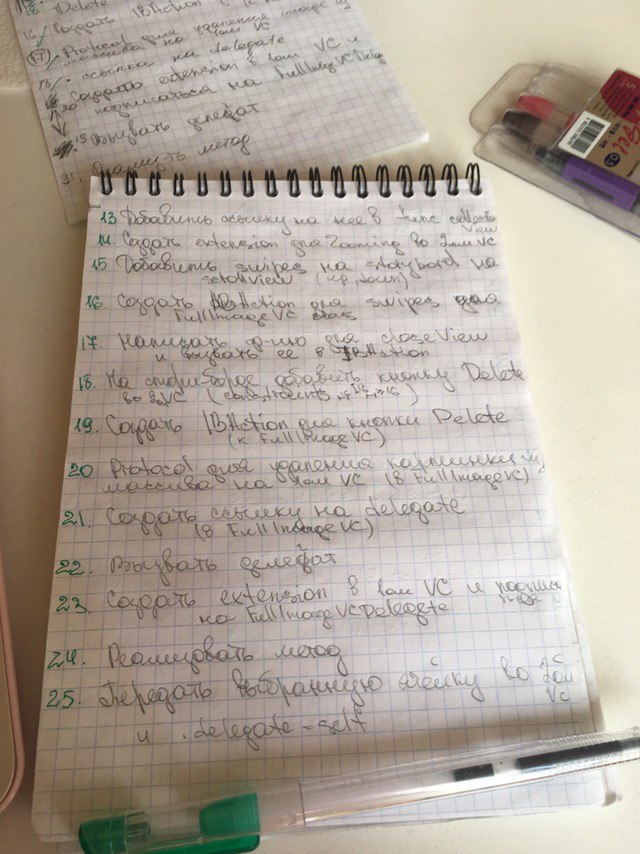 18. Delete
16. Создать IBAction в
17. Protocol для удаления image из
массива на 1ом VC
ссылка на delegate
Создать extension в 1ом VC и
подписаться на FullImageVCDeleg
Вызвать делегат
21. метод
13 Добавить ссылку на нее в func collection
View
14. Создать extension для Zooming во 2ом VC
15 Добавить swipes на storyboard на
scrollView (up, down)
16 Создать IBAction для swipes для
FullImageVC
17. Написать ф-цию для closeView
и вызвать ее в IBAction
18. На сториборде добавить кнопку Delete
во 2ом VC (constraints
19. Создать IBAction для кнопки Delete
(к FullImageVC)
20 Protocol для удаления картинки из
массива на 1ом VC (в FullImageVC)
21. Создать ссылку на delegate
(в FullImageVC)
22. Вызвать делегат
23. Создать extension в 1ом VC и
на FullImageVCDelegate
24. Реализовать метод
25. Передать выбранную ячейку во 2ом
VC
и .delegate = self